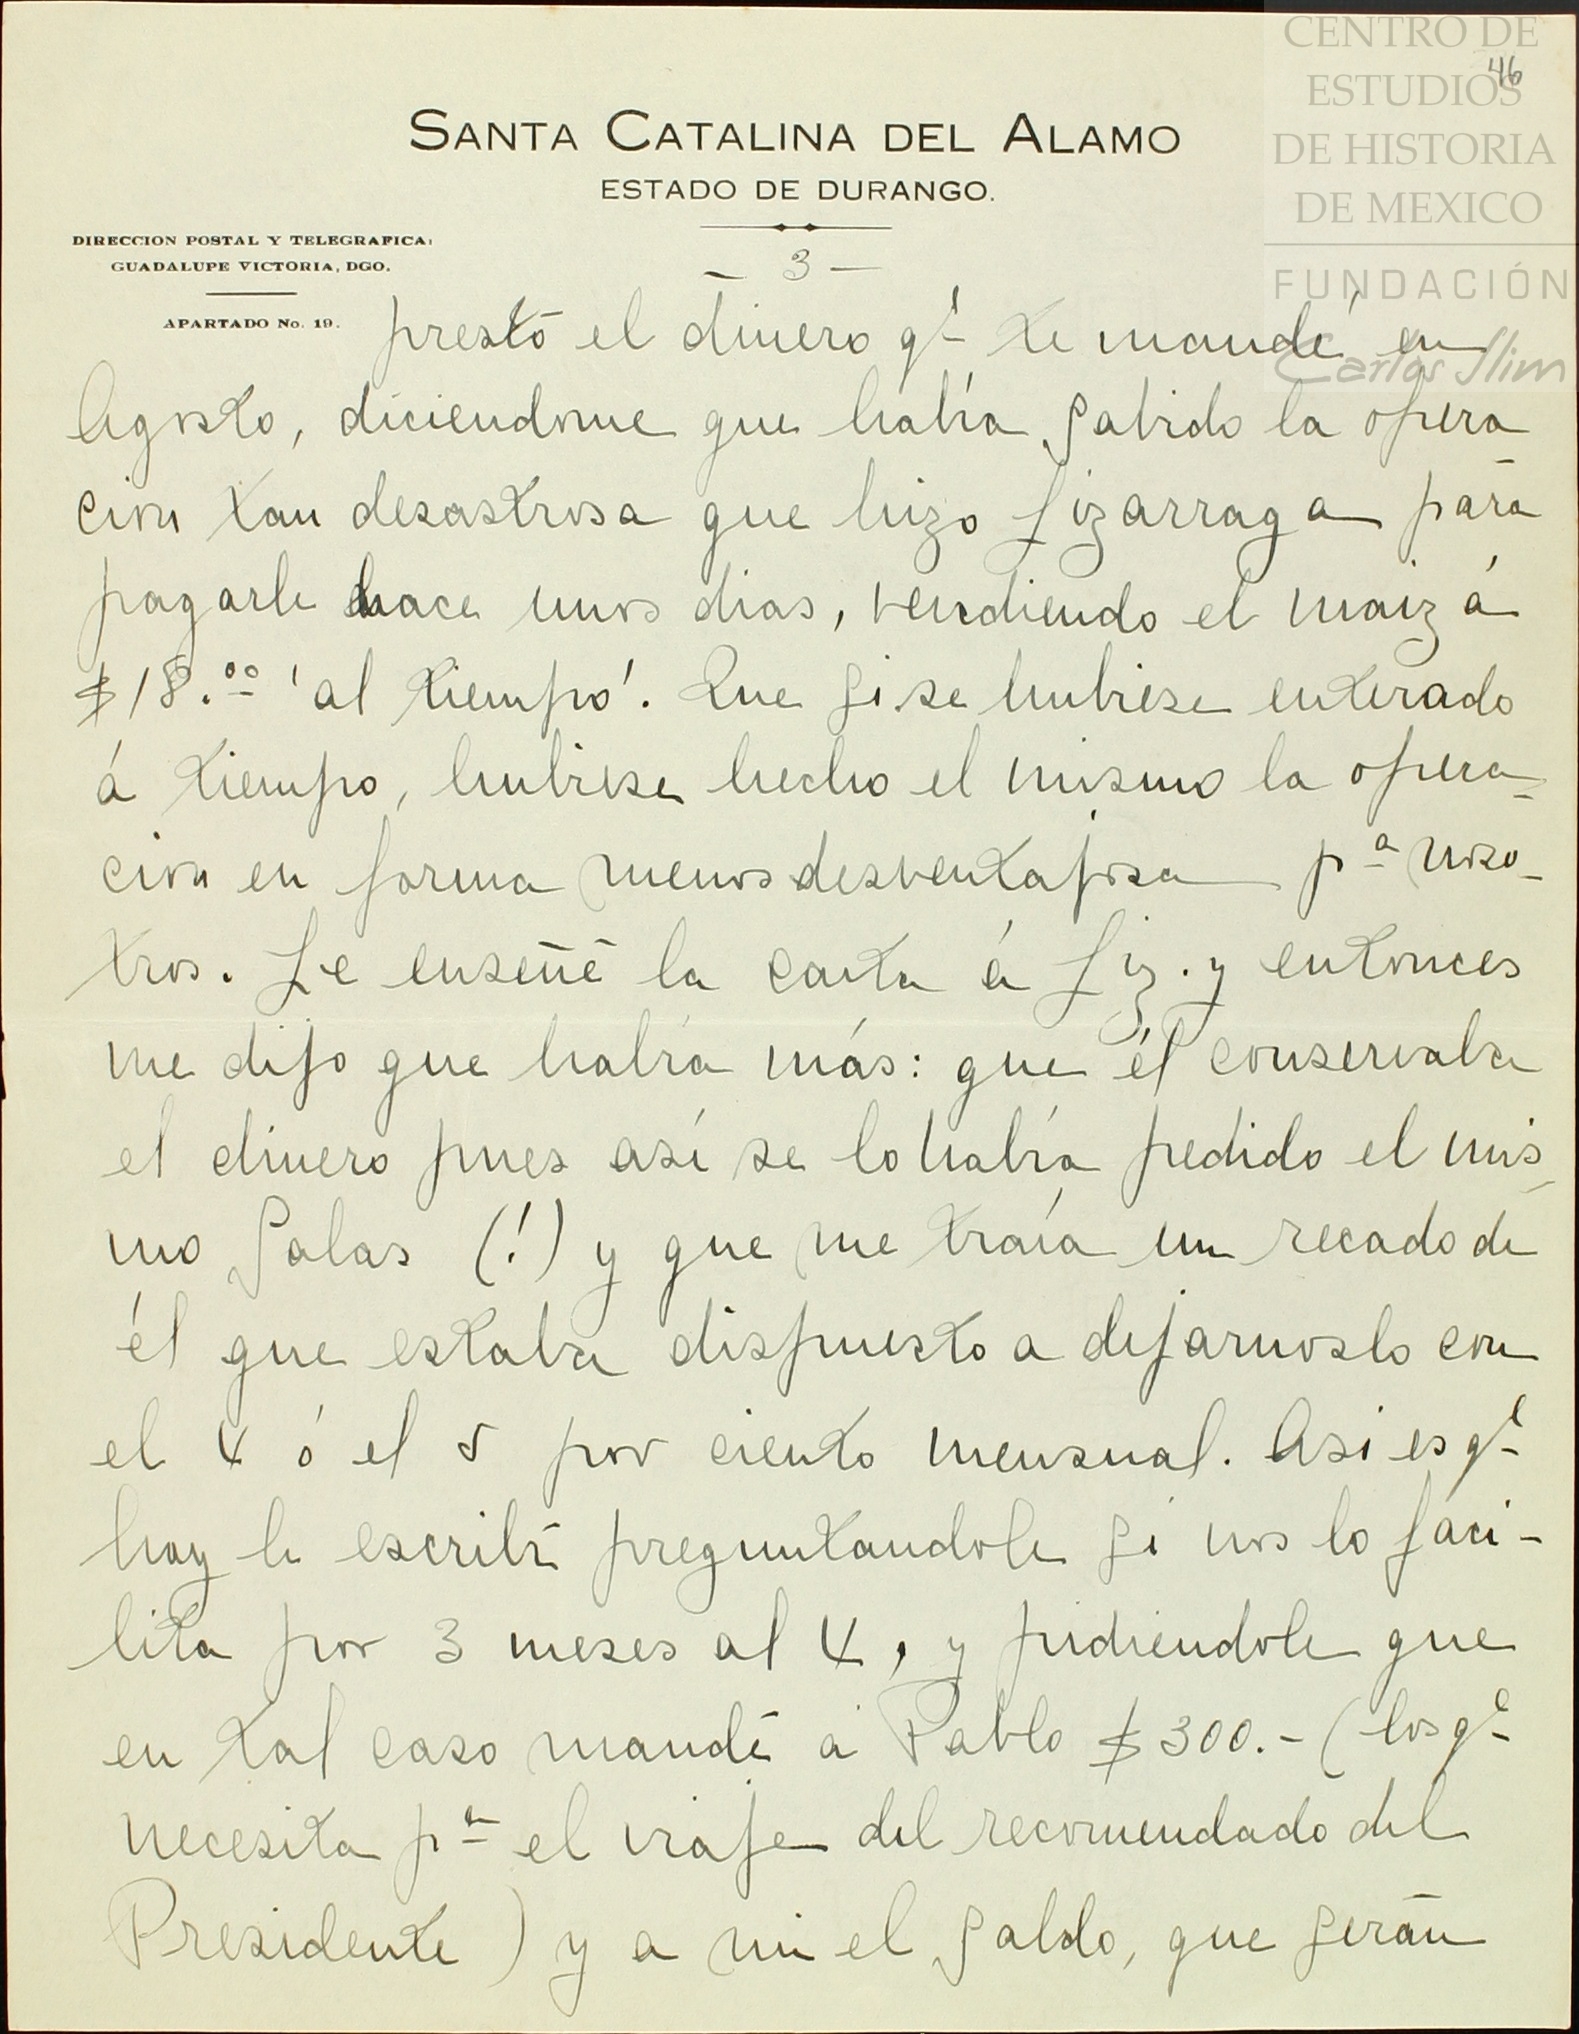 CENTRO DE
ESTUDIOS
46
DE HISTORIA
DE MEXICO
FUNDACIÓN
Carlos Slim
SANTA CATALINA DEL ALAMO
ESTADO DE DURANGO.
DIRECCION POSTAL Y TELEGRAFICA:
GUADALUPE VICTORIA, DGO.
APARTADO No. 19.
- 3 -
prestó el dinero qᵉ le mandé en
Agosto, diciendome que había sabido la opera
cion tan desastrosa que hizo Lizarraga para
pagarle hace unos dias, vendiendo el maiz á
$18.ºº 'al tiempo'. Que si se hubiese enterado
á tiempo, hubiese hecho el mismo la opera-
cion en forma menos desventajosa pª noso-
tros. Le enseñé la carta á Liz. y entonces
me dijo que había más: que él conservaba
el dinero pues así se lo había pedido el mis-
mo Salas (!) y que me traía un recado de
él que estaba dispuesto a dejarnoslo con
el 4 ó el 5 por ciento mensual. Asi es qᵉ
hoy le escribí preguntandole si nos lo faci-
lita por 3 meses al 4, y pidiendole que
en tal caso mandé á Pablo $300.- (los qᵉ
necesita pª el viaje del recomendado del
Presidente) y a mi el saldo, que serán